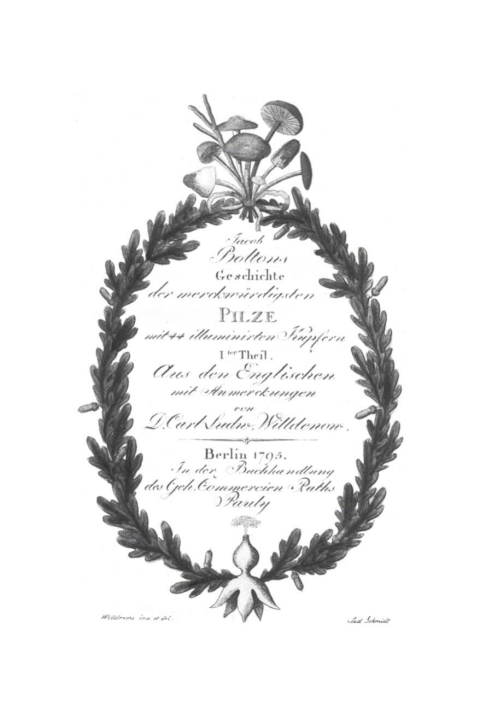 Jacob
Boltons
Geschichte
der merckwürdigsten
PILZE
mit 44 illuminirten Kupfern
I ter Theil.
Aus den Englischen
mit Anmerckungen
von
D. Carl Ludw. Willdenow.
Berlin 1795.
In der Buchhandlung
des Geh. Commercien Raths
Pauly
Willdenow inv. et del.
Schmidt